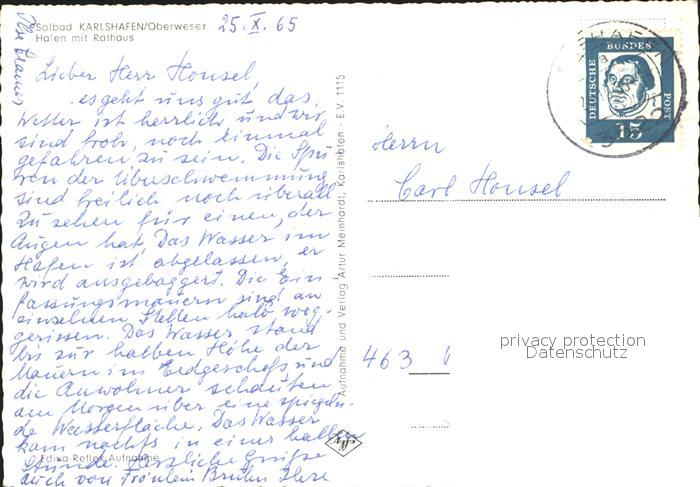 Solbad KARLSHAFEN/Oberweser
Hafen mit Rathaus
25.X.65
Lieber Herr Housel,
es geht uns gut, das
Wetter ist herrlich und wir
sind froh, noch einmal
gefahren zu sein. Die Spu-
ren der Überschwemmung
sind freilich noch überall
zu sehen für einen, der
Augen hat. Das Wasser im
Hafen ist abgelassen, er
wird ausgebaggert. Die Ein-
fassungsmauern sind an
einzelnen Stellen halb weg-
gerissen. Das Wasser stand
bis zur halben Höhe der
Mauern im Erdgeschoß und
die Anwohner schauten
am Morgen über eine spiegeln-
de Wasserfläche. Das Wasser
kam nachts in einer halben
Stunde. Herzliche Grüße
auch von Fräulein Bruhn Ihre
Ilse
Edixa-Reflex-Aufnahme
Aufnahme und Verlag Artur Meinhardt, Karlshafen - E.V. 1115
DEUTSCHE
BUNDES
POST
15
Herrn
Carl Housel
463
privacy protection
Datenschutz